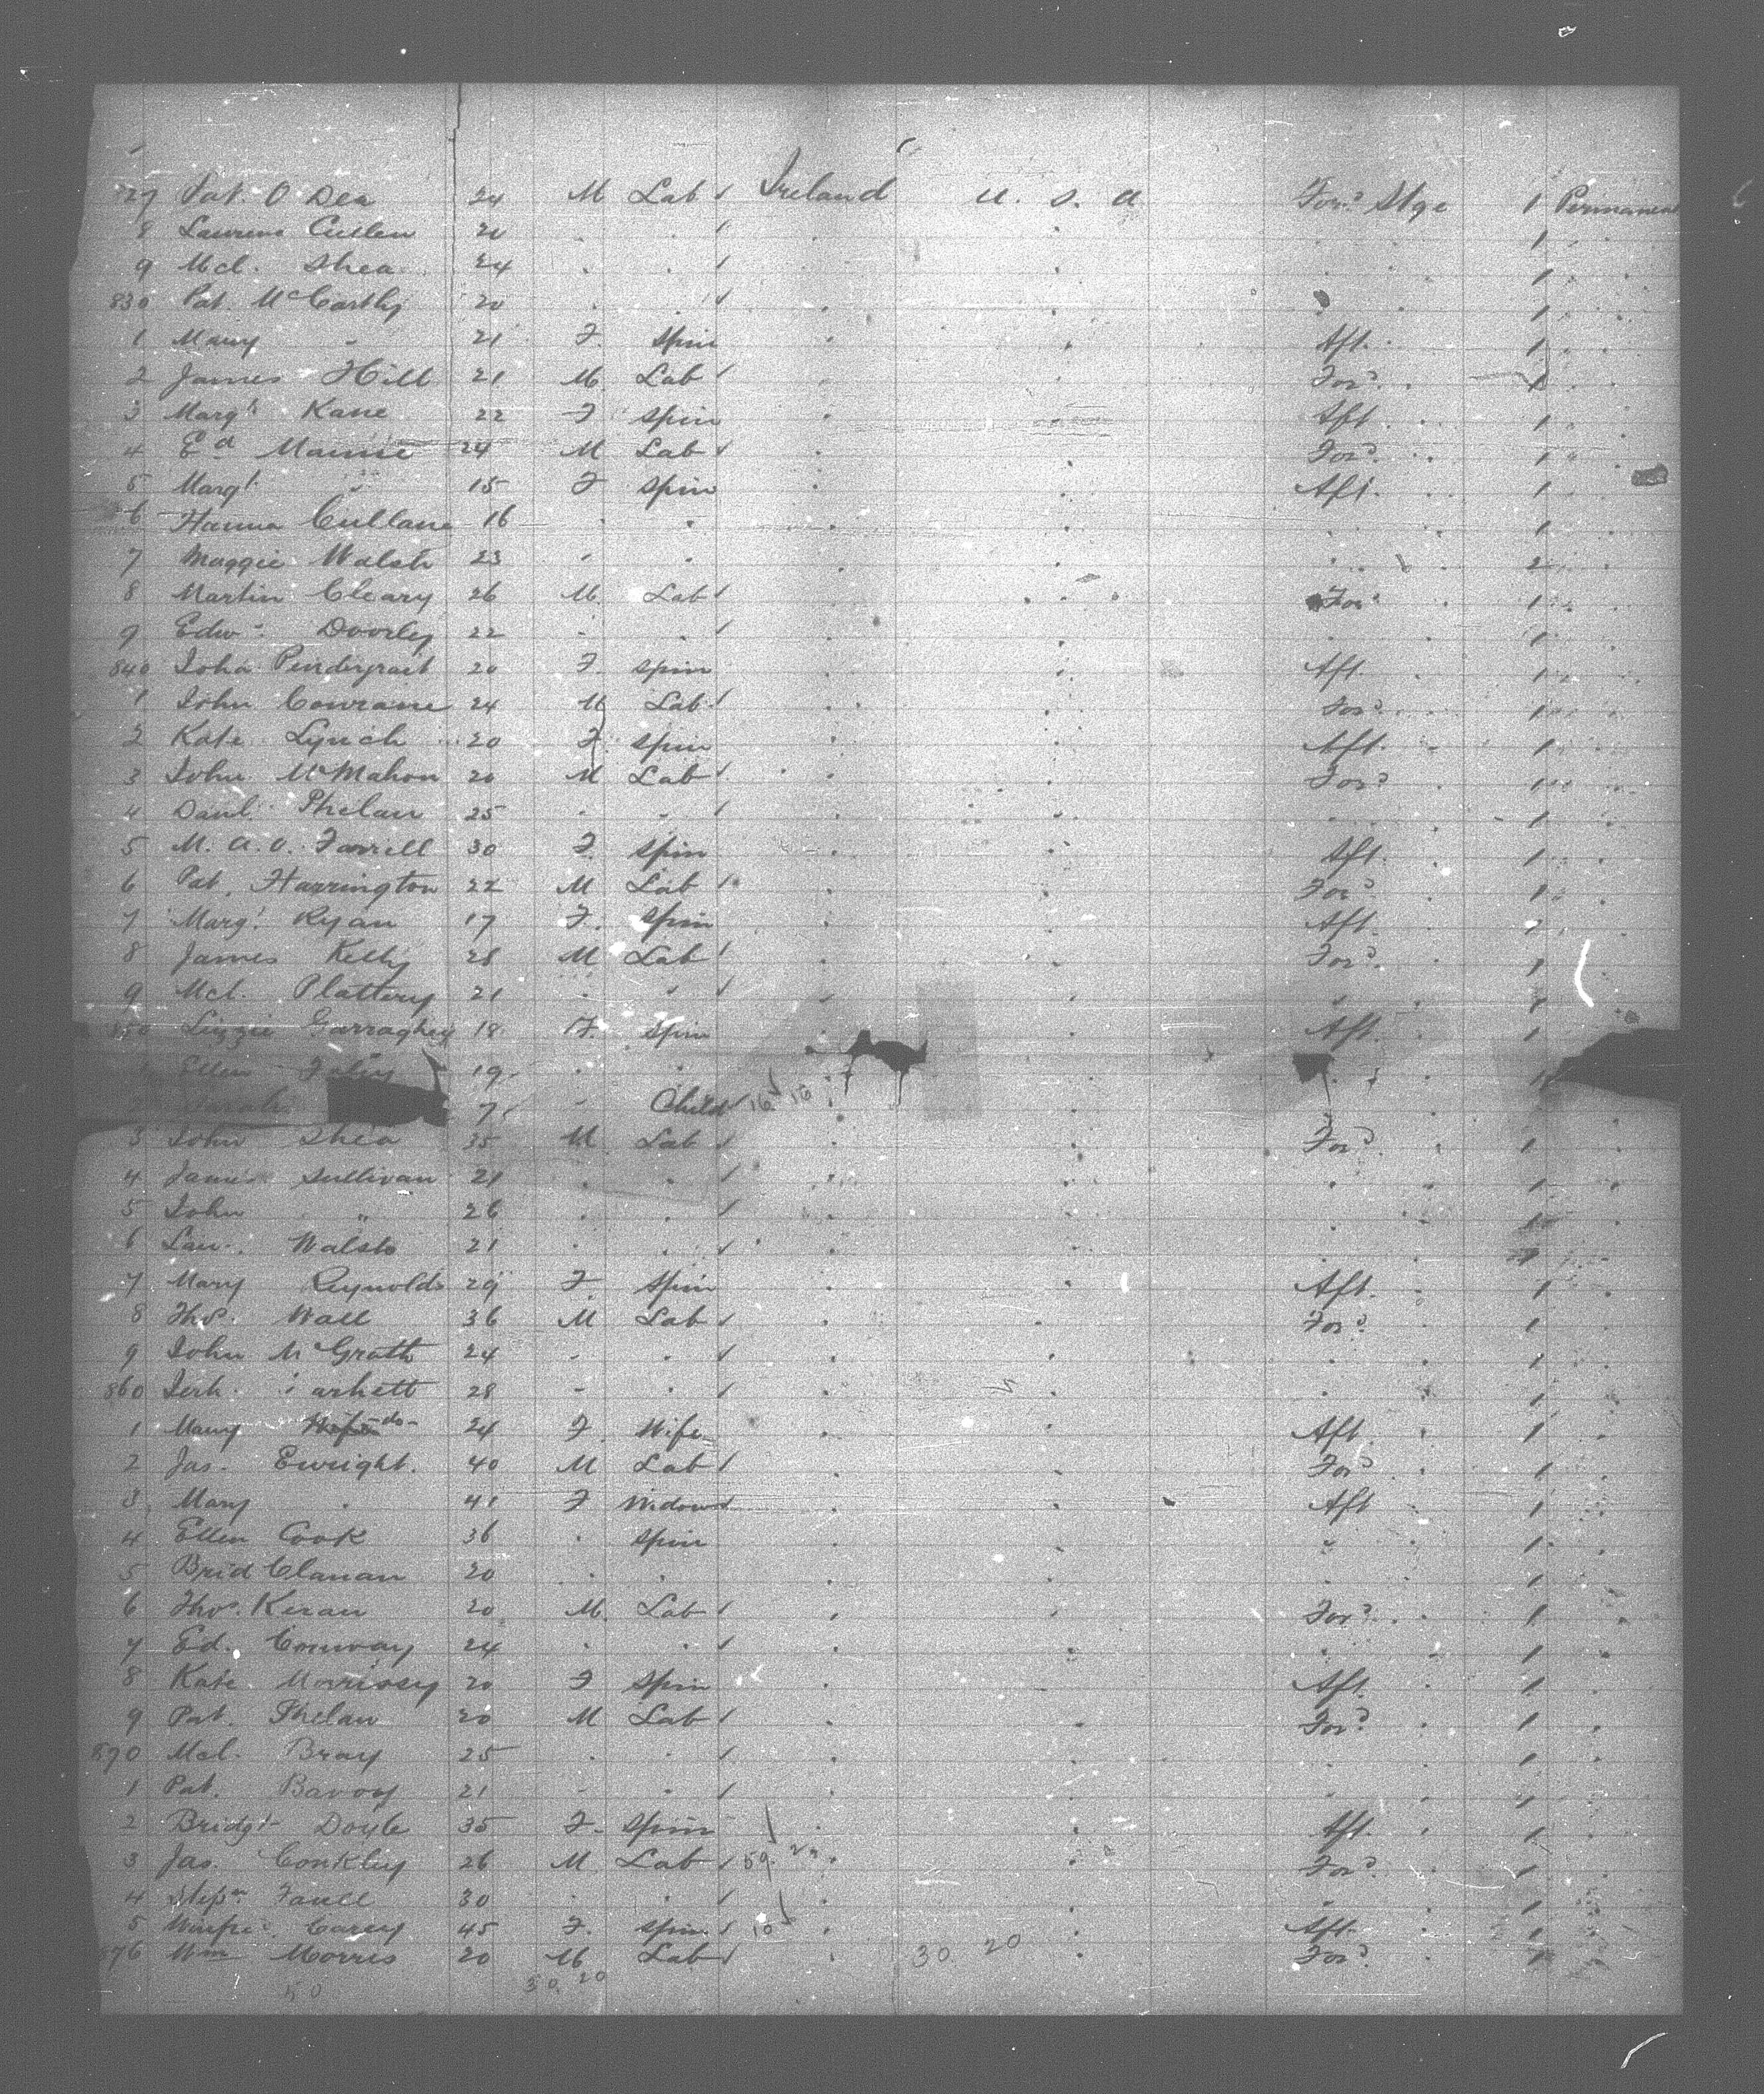 27 Pat. O Dea 24 M Lab Ireland U. S. A For? Stge 1 Permanent
8 Laurene Cullen 20 . . 1
9 Mcl. Shea 24 . . 1
830 Pat. McCarthy 20 . . 1
1 Mary " 21 F. Spin Aft. 1
2 James Hill 21 M. Lab For? 1
3 Margt. Kane 22 F Spin Aft. 1
4 Ed 24 M Lab For? 1
5 Margt. " 15 F Spin Aft. 1
6 Hanna Cullane 16 . . 1
7 Maggie Walsh 23 . . 2
8 Martin Cleary 26 M. Lab For? 1
9 Edw. Doorley 22 . . 1
840 20 F. Spin Aft. 1
1 John 24 M Lab For? 1
2 Kate Lynch 20 F. Spin Aft. 1
3 John McMahon 20 M Lab For? 1
4 Danl. Phelan 25 . . 1
5 M. A. O. Farrell 30 F. Spin Aft. 1
6 Pat. Harrington 22 M Lab For? 1
7 Margt. Ryan 17 F. Spin Aft. 1
8 James Kelly 28 M Lab For? 1
9 Mcl. Plattery 21 . . 1
850 Lizzie Garraghey 18 F. Spin Aft. 1
1 Ellen Foley 19 . . 1
Sarah 7 " Child 16 16
3 John Shea 35 M Lab For? 1
4 James Sullivan 21 . . 1
5 John " 26 . . 1
6 Lau. Walsh 21 . . 1
7 Mary Reynolds 29 F. Spin Aft. 1
8 Thos. Wall 36 M Lab For? 1
9 John McGrath 24 . . 1
860 Jerh. 28 . . 1
1 Mary -do- 24 F. Wife Aft. 1
2 Jas. Enright. 40 M Lab For? 1
3 Mary " 41 F Widow Aft 1
4 Ellen Cook 36 . Spin " 1
5 Brid Clanan 20 . . 1
6 Thos. Kiran 20 M. Lab For? 1
7 Ed. Conway 24 . . 1
8 Kate Morrissey 20 F Spin Aft. 1
9 Pat. Phelan 20 M Lab For? 1
870 Mcl. Bray 25 . . 1
1 Pat. Bavoy 21 . . 1
2 Bridgt Doyle 35 F. Spin Aft. 1
3 Jas. Conkley 26 M Lab 59 For? 1
4 Stepn. 30 . . 1
5 Carey 45 F. Spin 10 Aft. 1
876 Wm Morris 20 M Lab 30. 20 For? 1
50 30. 20